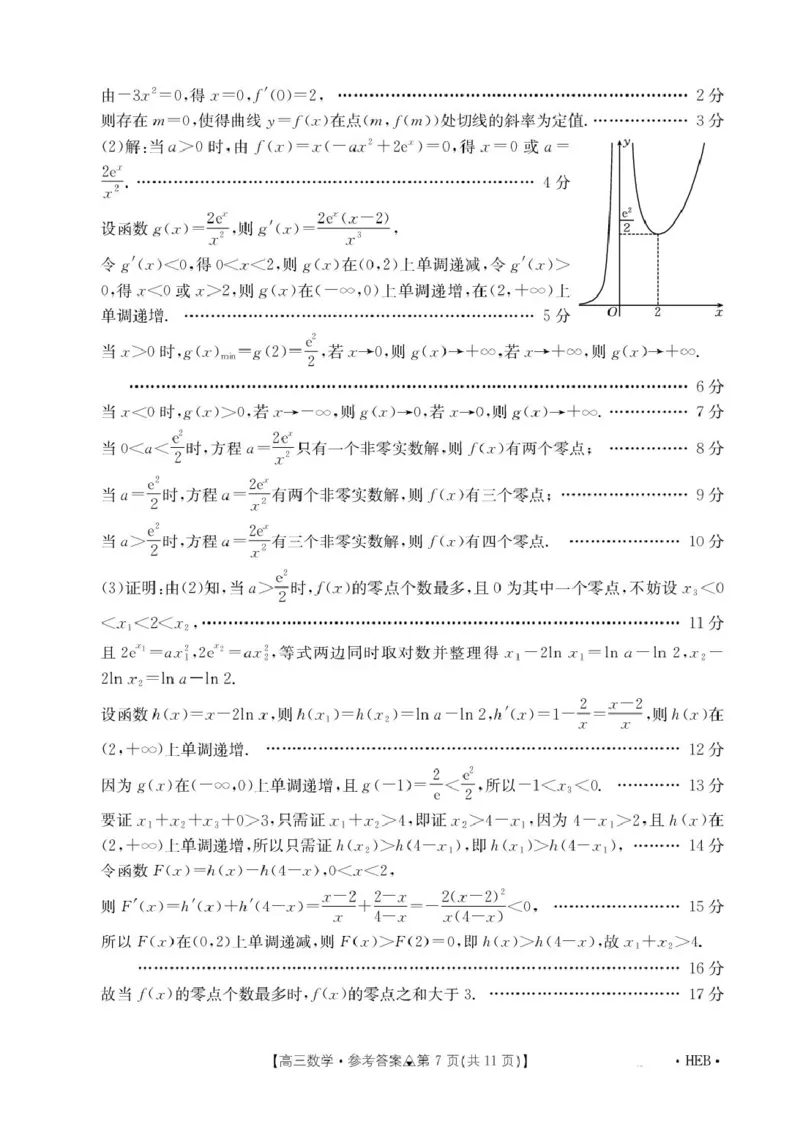 由－3x²=0,得 x=0,f′(0)=2, …… 2 分
则存在 m=0,使得曲线 y=f(x)在点(m,f(m))处切线的斜率为定值. …… 3 分
(2)解:当 a>0 时,由 f(x)=x(－ax²+2eˣ)=0,得 x=0 或 a=
2eˣ/x². …… 4 分
设函数 g(x)=2eˣ/x²,则 g′(x)=2eˣ(x－2)/x³,
令 g′(x)<0,得 0<x<2,则 g(x)在(0,2)上单调递减,令 g′(x)>
0,得 x<0 或 x>2,则 g(x)在(－∞,0)上单调递增,在(2,+∞)上
单调递增. …… 5 分
y
e²/2
O 2 x
当 x>0 时,g(x)min=g(2)=e²/2,若 x→0,则 g(x)→+∞,若 x→+∞,则 g(x)→+∞.
…… 6 分
当 x<0 时,g(x)>0,若 x→－∞,则 g(x)→0,若 x→0,则 g(x)→+∞. …… 7 分
当 0<a<e²/2时,方程 a=2eˣ/x²只有一个非零实数解,则 f(x)有两个零点; …… 8 分
当 a=e²/2时,方程 a=2eˣ/x²有两个非零实数解,则 f(x)有三个零点; …… 9 分
当 a>e²/2时,方程 a=2eˣ/x²有三个非零实数解,则 f(x)有四个零点. …… 10 分
(3)证明:由(2)知,当 a>e²/2时,f(x)的零点个数最多,且 0 为其中一个零点,不妨设 x₃<0
<x₁<2<x₂, …… 11 分
且 2e^(x₁)=ax₁²,2e^(x₂)=ax₂²,等式两边同时取对数并整理得 x₁－2ln x₁=ln a－ln 2,x₂－
2ln x₂=ln a－ln 2.
设函数 h(x)=x－2ln x,则 h(x₁)=h(x₂)=ln a－ln 2,h′(x)=1－2/x=(x－2)/x,则 h(x)在
(2,+∞)上单调递增. …… 12 分
因为 g(x)在(－∞,0)上单调递增,且 g(－1)=2/e<e²/2,所以－1<x₃<0. …… 13 分
要证 x₁+x₂+x₃+0>3,只需证 x₁+x₂>4,即证 x₂>4－x₁,因为 4－x₁>2,且 h(x)在
(2,+∞)上单调递增,所以只需证 h(x₂)>h(4－x₁),即 h(x₁)>h(4－x₁), …… 14 分
令函数 F(x)=h(x)－h(4－x),0<x<2,
则 F′(x)=h′(x)+h′(4－x)=(x－2)/x+(2－x)/(4－x)=－2(x－2)²/(x(4－x))<0, …… 15 分
所以 F(x)在(0,2)上单调递减,则 F(x)>F(2)=0,即 h(x)>h(4－x),故 x₁+x₂>4.
…… 16 分
故当 f(x)的零点个数最多时,f(x)的零点之和大于 3. …… 17 分
【高三数学·参考答案 第 7 页(共 11 页)】 ·HEB·